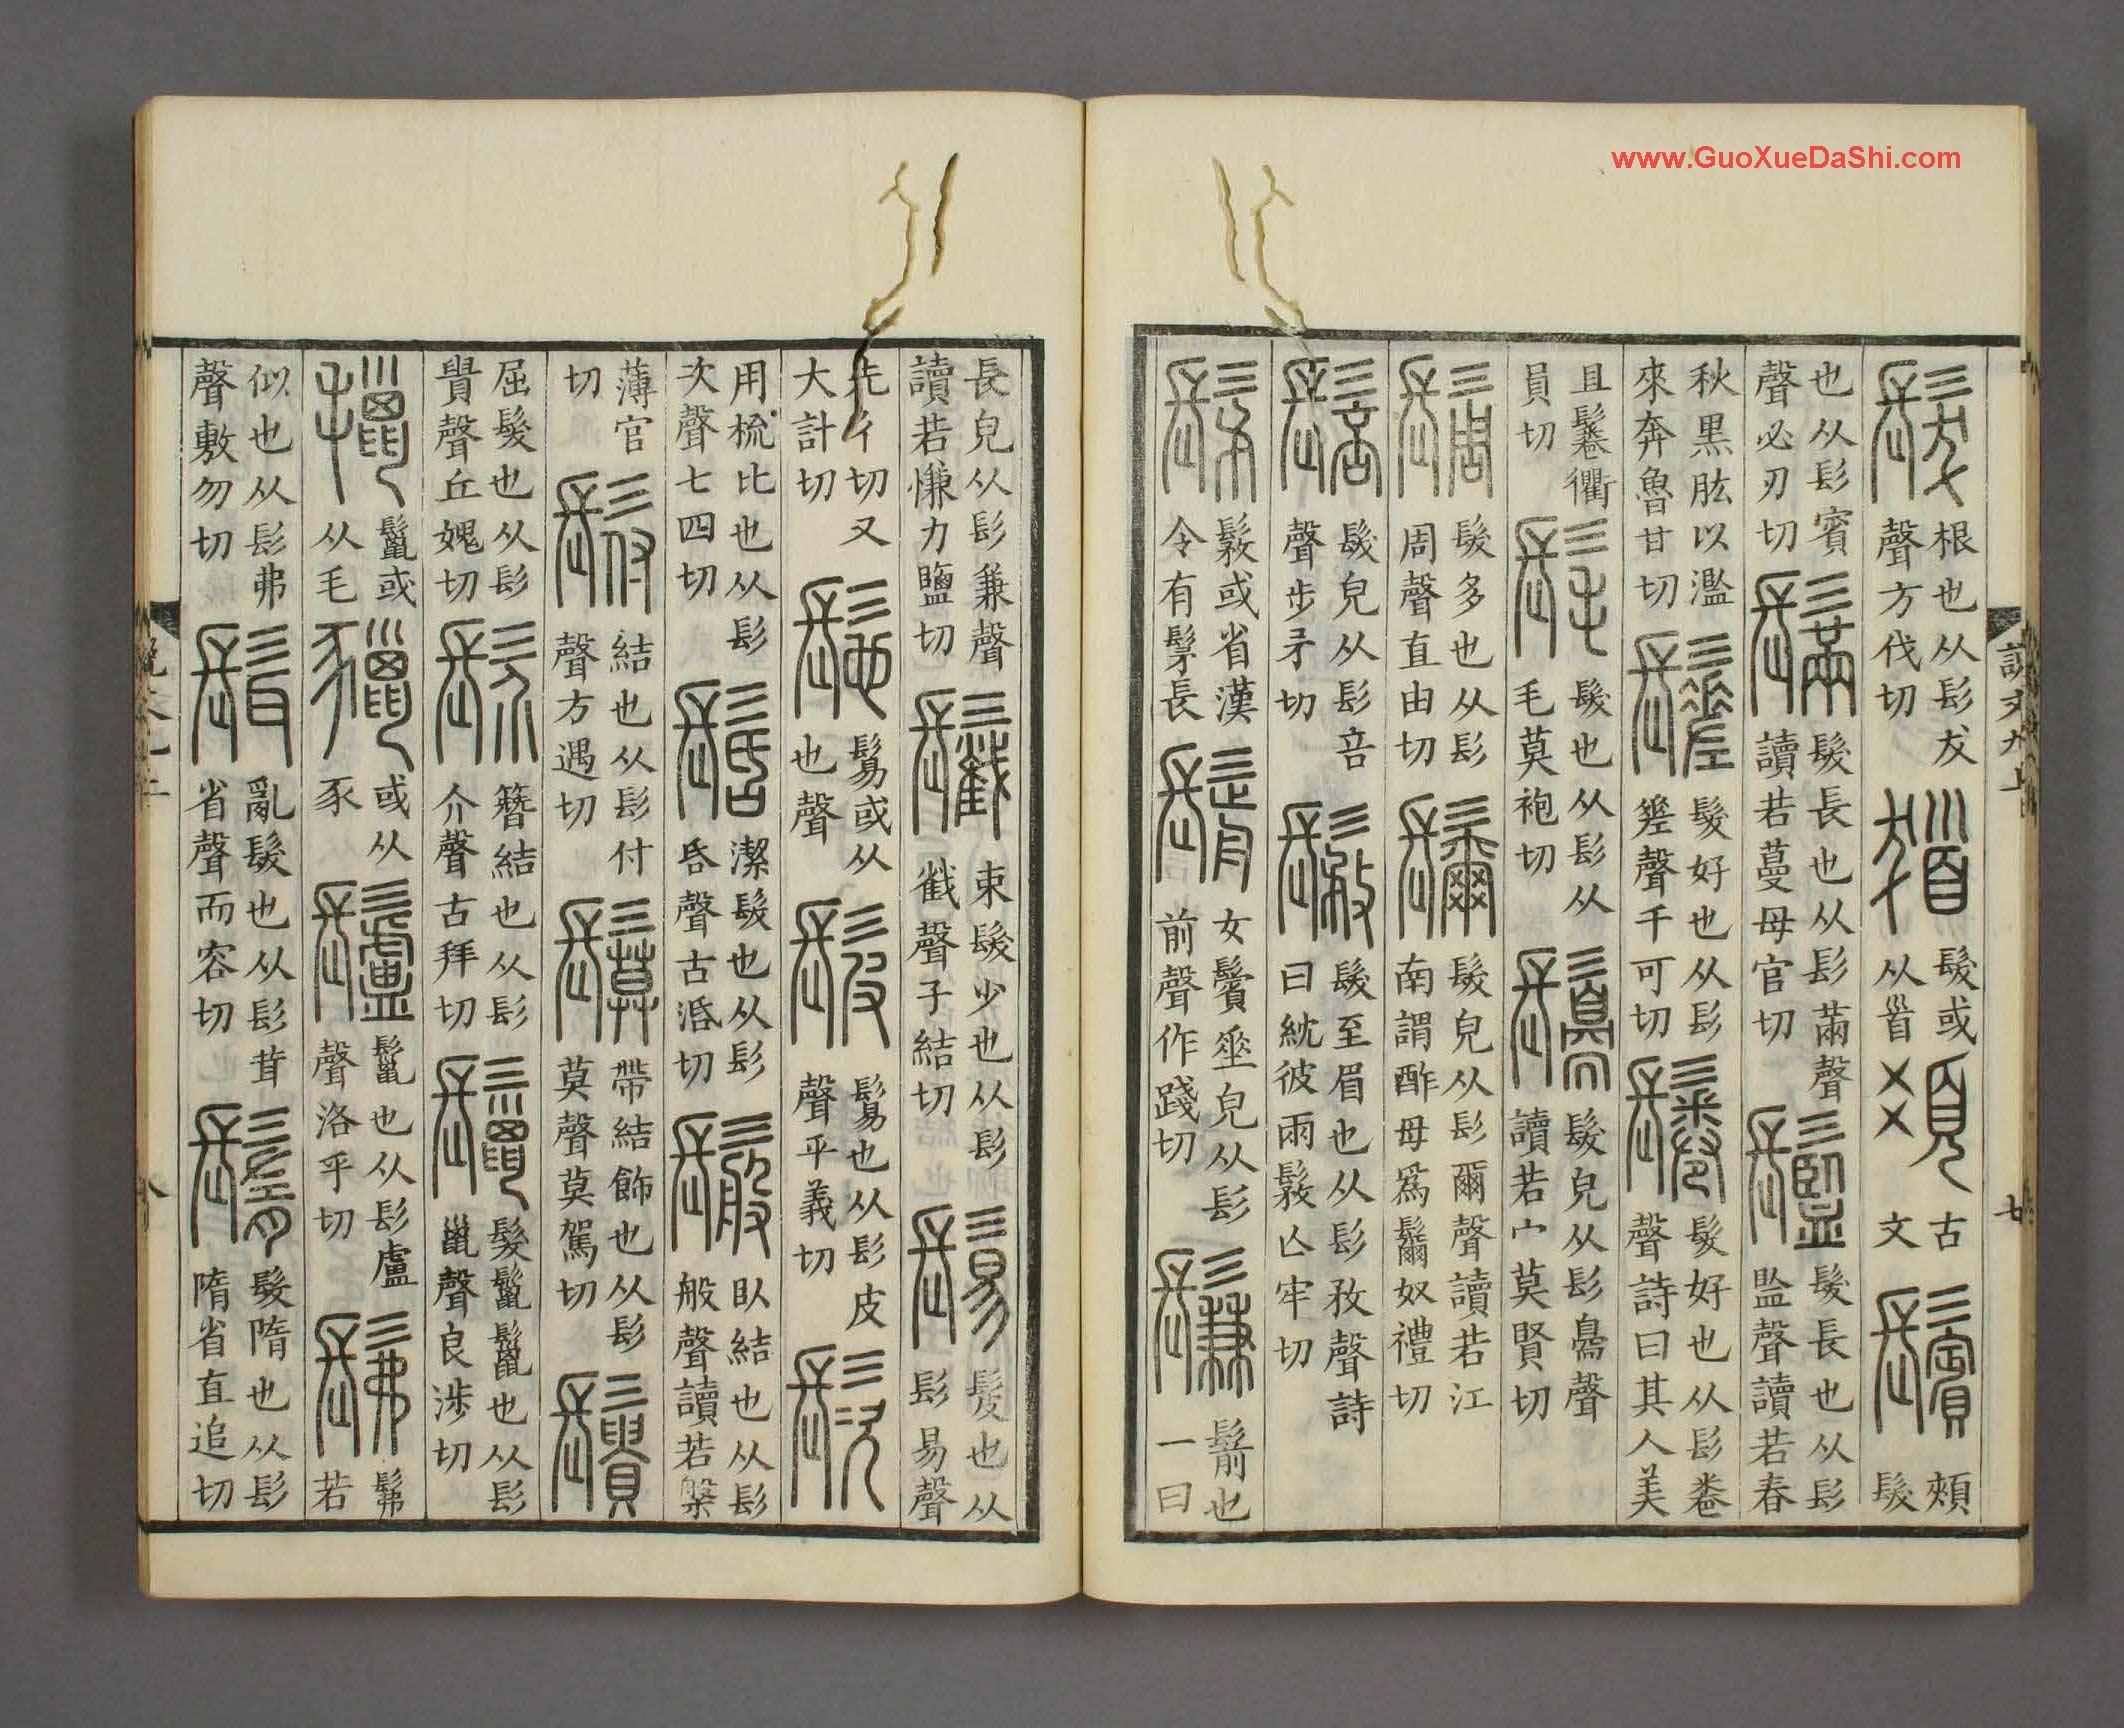 www.GuoXueDaShi.com
說文九上 七
髮 根也从髟犮聲方伐切 髮或从𩠐 古文 鬢 頰髮
也从髟賓聲必刃切 髮長也从髟㒼聲讀若蔓母官切 髮長也从髟監聲讀若春
秋黑肱以濫來奔魯甘切 髮好也从髟聲千可切 鬈 髮好也从髟卷聲詩曰其人美
且鬈衢員切 髦 髮也从髟从毛莫袍切 髮皃从髟聲讀若宀莫賢切
髮多也从髟周聲直由切 髮皃从髟爾聲讀若江南謂酢母爲奴禮切
髮皃从髟咅聲步矛切 髮至眉也从髟敄聲詩曰紞彼兩亡牢切
髳 或省漢令有髳長 鬋 女鬢垂皃从髟前聲作踐切 鬑 鬋也一曰
長皃从髟兼聲讀若慊力鹽切 束髮少也从髟截聲子結切 鬄 髲也从髟易聲
先彳切又大計切 髢 鬄或从也聲 髲 鬄也从髟皮聲平義切
用梳比也从髟次聲七四切 髺 潔髮也从髟𠯑聲古活切 臥結也从髟般聲讀若槃
薄官切 結也从髟付聲方遇切 帶結飾也从髟莫聲莫駕切
屈髮也从髟貴聲丘媿切 簪結也从髟介聲古拜切 鬣 髮鬣鬣也从髟巤聲良涉切
鬣或从毛 或从豕 鬣也从髟盧聲洛乎切 髴 髴若
似也从髟弗聲敷勿切 髶 亂髮也从髟茸省聲而容切 鬌 髮隋也从髟隋省直追切
八